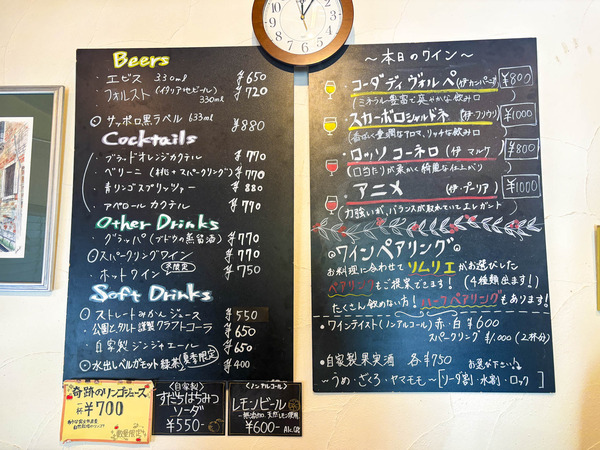 Beers
・エビス 330ml ¥650
・フォルスト(イタリア地ビール) ¥720
330ml
◎サッポロ黒ラベル 633ml ¥880
Cocktails
・ブラッドオレンジカクテル ¥770
・ベリーニ (桃 + スパークリング) ¥770
・青リンゴスプリッツァー ¥880
・アペロール カクテル ¥770
Other Drinks
・グラッパ(ブドウの蒸留酒) ¥770
◎スパークリングワイン ¥770
・ホットワイン 冬限定 ¥750
Soft Drinks
◎ストレートみかんジュース ¥550
・公園とタルト謹製クラフトコーラ ¥650
・自家製ジンジャエール ¥650
◎水出しベルガモット緑茶 夏季限定 ¥400
奇跡のリンゴジュース
一杯 ¥700
数量限定
(自家製)
すだちはちみつ
ソーダ
¥550-
(ノンアルコール)
レモンビール
無添加 天然レモン使用
¥600-
〜本日のワイン〜
・コーダ ディ ヴォルペ (伊 カンパーニャ) ¥800
(ミネラル豊富で爽やかな飲み口
・スカーボロシャルドネ (伊・フリウリ) ¥1000
(香ばしく豊潤なアロマ、リッチな飲み口
・ロッソ コーネロ (伊 マルケ) ¥800
(口当たりが柔かく綺麗な仕上がり
・アニメ (伊・プーリア) ¥1000
力強いが、バランスが取れていてエレガント
◎ワインペアリング◎
お料理に合わせて ソムリエがお選びした
ペアリングもご提案できます! (4種類出ます!)
たくさん飲めない方! ハーフペアリングもあります!
・ワインテイスト(ノンアルコール) 赤・白 ¥600
スパークリング ¥1,000 (2杯分)
・自家製果実酒 各¥750
お選び下さい
〜うめ・ざくろ・ヤマモモ〜[ソーダ割・水割・ロック]